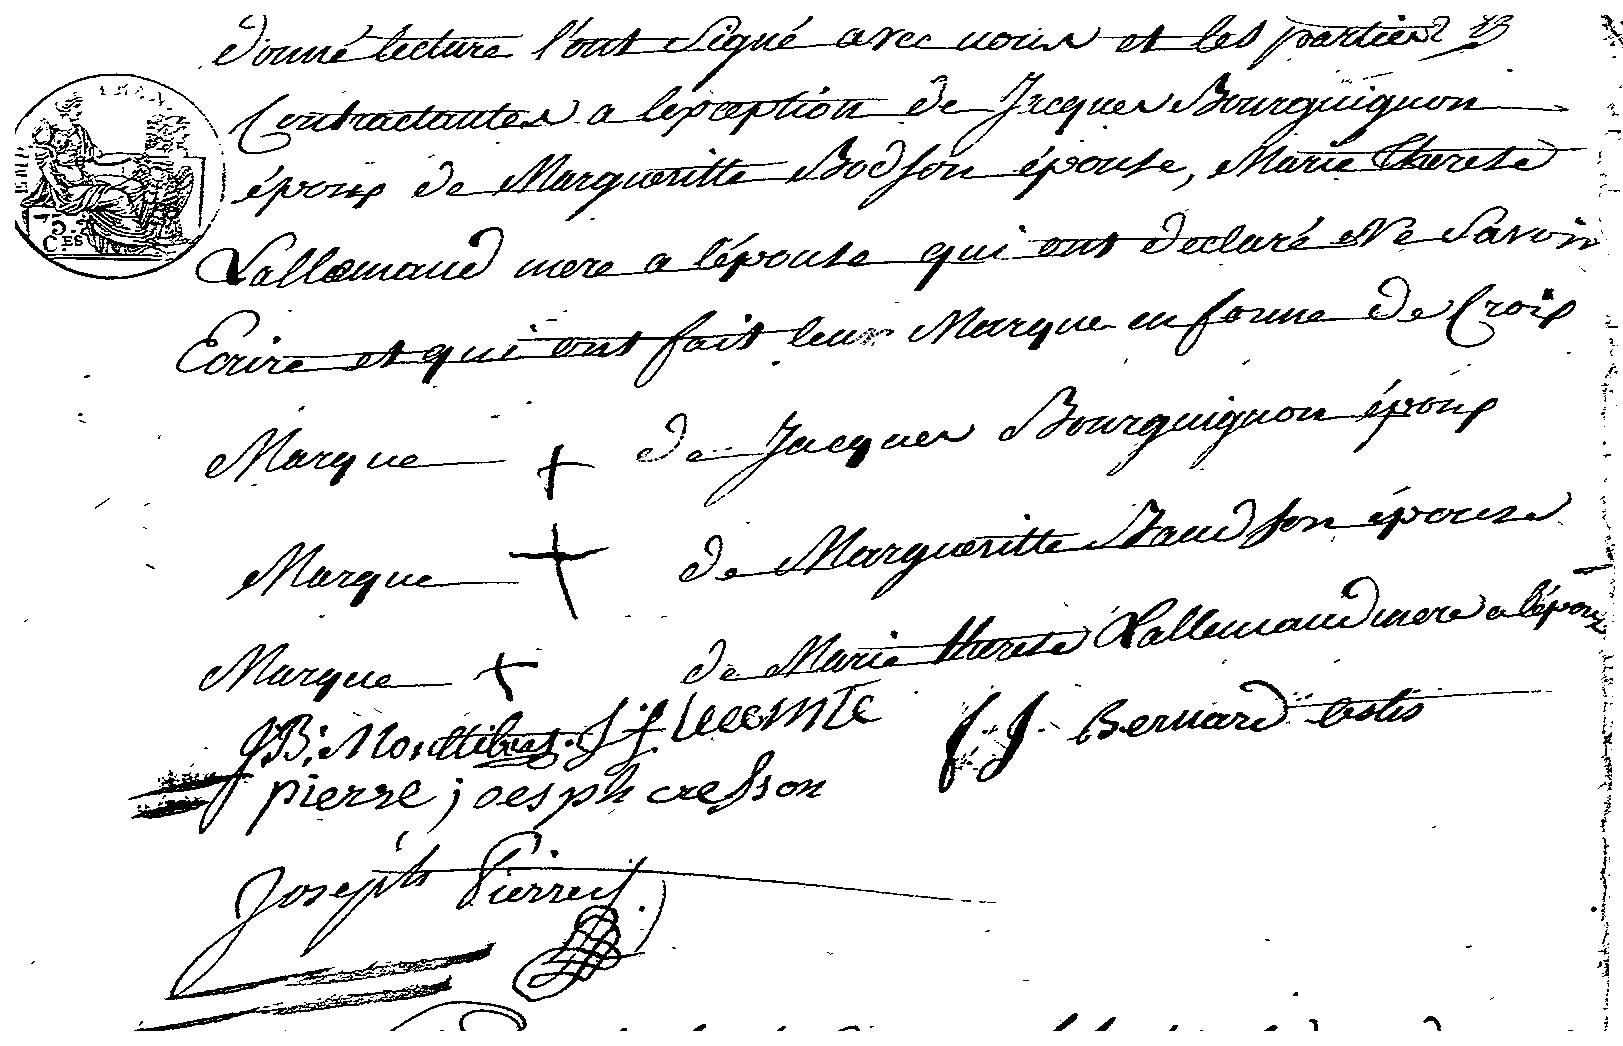 donné lecture l'ont signé avec nous et les parties
Contractantes a lexception de Jacques Bourguignon
époux de Margueritte Bodson épouse, Marie therese
Lallemand mere a l'épouse qui ont declaré Ne Savoir
Ecrire et qui ont fait leur Marque en forme de Croix
Marque + de Jacques Bourguignon époux
Marque + de Margueritte épouse
Marque + de Marie therese Lallemand mere a l'épou
75 C.ES
J B: J f lecomte J. J. Bernard testis
pierre joesph cresson
Joseph Pierret